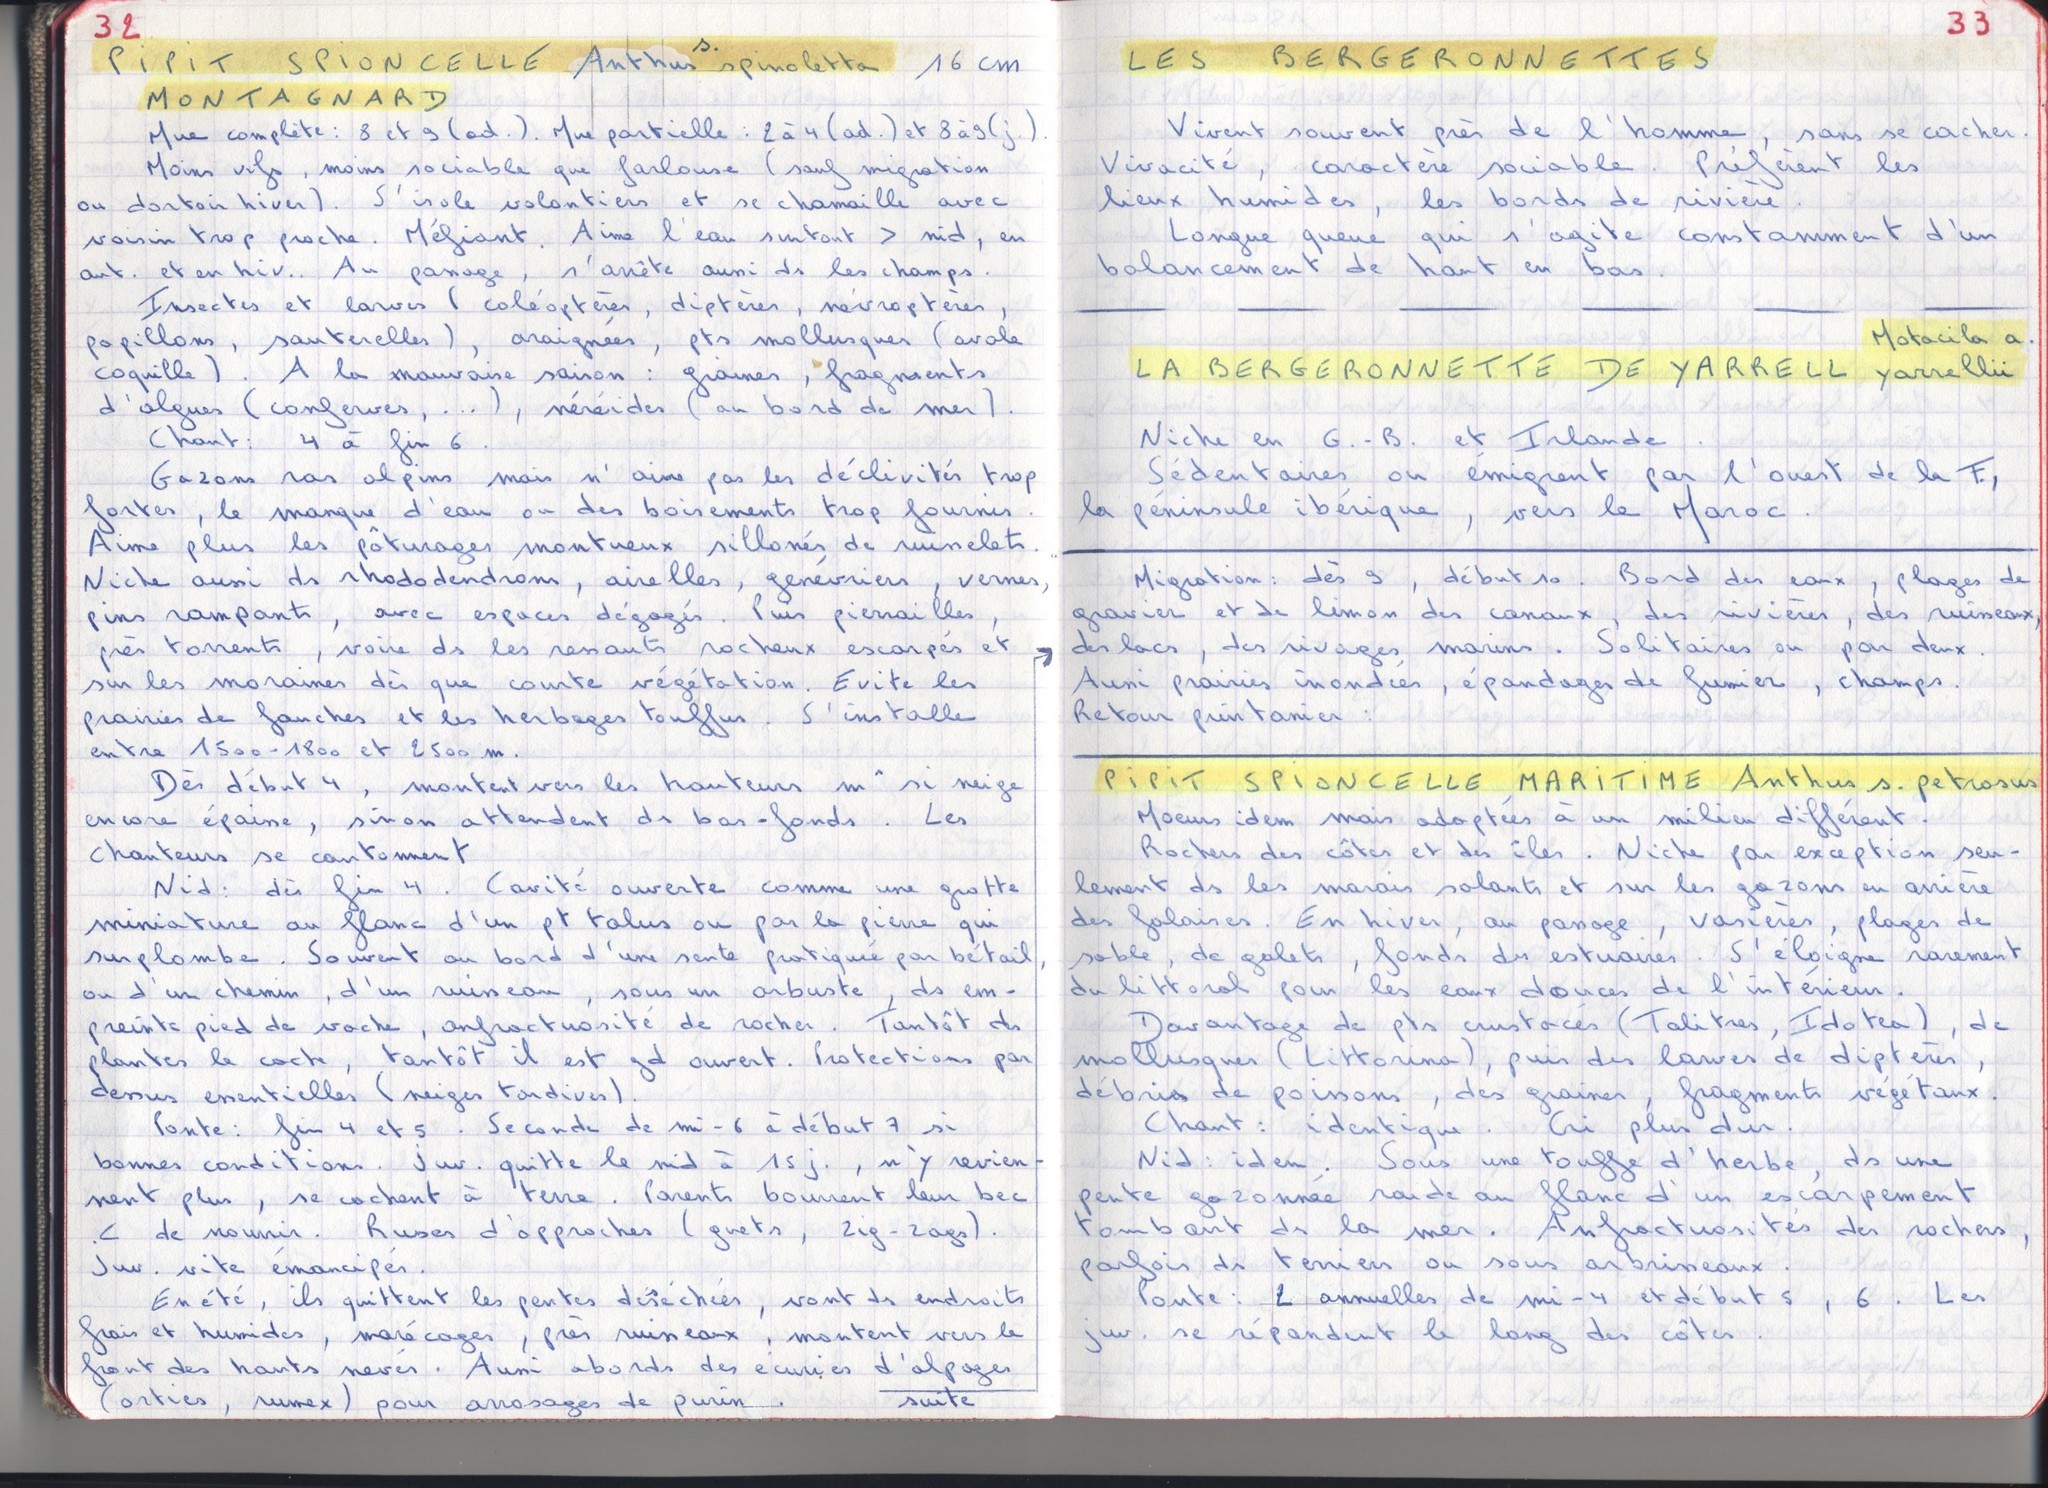 32
PIPIT SPIONCELLE Anthus s. spinoletta 16 cm
MONTAGNARD
Mue complète : 8 et 9 (ad.). Mue partielle : 2 à 4 (ad.) et 8 à 9 (j.).
Moins vifs, moins sociable que farlouse (sauf migration
ou dortoir hiver). S'isole volontiers et se chamaille avec
voisin trop proche. Méfiant. Aime l'eau surtout > nid, en
aut. et en hiv.. Au passage, s'arrête aussi ds les champs.
Insectes et larves (coléoptères, diptères, névroptères,
papillons, sauterelles), araignées, pts mollusques (avale
coquille). A la mauvaise saison : graines, fragments
d'algues (conferves, ...), néréides (au bord de mer).
Chant : 4 à fin 6.
Gazons ras alpins mais n'aime pas les déclivités trop
fortes, le manque d'eau ou des boisements trop fournis.
Aime plus les pâturages montueux sillonés de ruisselets.
Niche aussi ds rhododendrons, airelles, genévriers, vernes,
pins rampants, avec espaces dégagés. Puis pierrailles,
près torrents, voire ds les ressauts rocheux escarpés et
sur les moraines dès que courte végétation. Evite les
prairies de fauches et les herbages touffus. S'installe
entre 1500-1800 et 2500 m.
Dès début 4, montent vers les hauteurs m^ si neige
encore épaisse, sinon attendent ds bas-fonds. Les
chanteurs se cantonnent
Nid : dès fin 4. Cavité ouverte comme une grotte
miniature au flanc d'un pt talus ou par la pierre qui
surplombe. Souvent au bord d'une sente pratiquée par bétail,
ou d'un chemin, d'un ruisseau, sous un arbuste, ds em-
preinte pied de vache, anfractuosité de rocher. Tantôt ds
plantes le cache, tantôt il est gd ouvert. Protections par
dessus essentielles (neiges tardives).
Ponte : fin 4 et 5. Seconde de mi-6 à début 7 si
bonnes conditions. Juv. quitte le nid à 15 j., n'y revien-
nent plus, se cachent à terre. Parents bourrent leur bec
< de nourrir. Ruses d'approches (guets, zig-zags).
Juv. vite émancipés.
En été, ils quittent les pentes deséchées, vont ds endroits
frais et humides, marécages, près ruisseaux, montent vers le
front des hauts nevés. Aussi abords des écuries d'alpages
(orties, rumex) pour arrosages de purin.
suite
33
LES BERGERONNETTES
Vivent souvent près de l'homme, sans se cacher.
Vivacité, caractère sociable. Préfèrent les
lieux humides, les bords de rivière.
Longue queue qui s'agite constamment d'un
balancement de haut en bas.
Motacila a.
LA BERGERONNETTE DE YARRELL yarrellii
Niche en G.-B. et Irlande.
Sédentaires ou émigrent par l'ouest de la F,
la péninsule ibérique, vers le Maroc.
Migration : dès 9, début 10. Bord des eaux, plages de
gravier et de limon des canaux, des rivières, des ruisseaux,
des lacs, des rivages marins. Solitaires ou par deux.
Aussi prairies inondées, épandages de fumier, champs.
Retour printanier :
PIPIT SPIONCELLE MARITIME Anthus s. petrosus
Moeurs idem mais adaptées à un milieu différent.
Rochers des côtes et des îles. Niche par exception seu-
lement ds les marais salants et sur les gazons en arrière
des falaises. En hiver, au passage, vasières, plages de
sable, de galets, fonds des estuaires. S'éloigne rarement
du littoral pour les eaux douces de l'intérieur.
Davantage de pts crustacés (Talitres, Idotea), de
mollusques (Littorina), puis des larves de diptères,
débris de poissons, des graines, fragments végétaux.
Chant : identique. Cri plus dur.
Nid : idem. Sous une touffe d'herbe, ds une
pente gazonnée raide au flanc d'un escarpement
tombant ds la mer. Anfractuosités des rochers,
parfois ds terriers ou sous arbrisseaux.
Ponte : 2 annuelles de mi-4 et début 5, 6. Les
juv. se répandent le long des côtes.